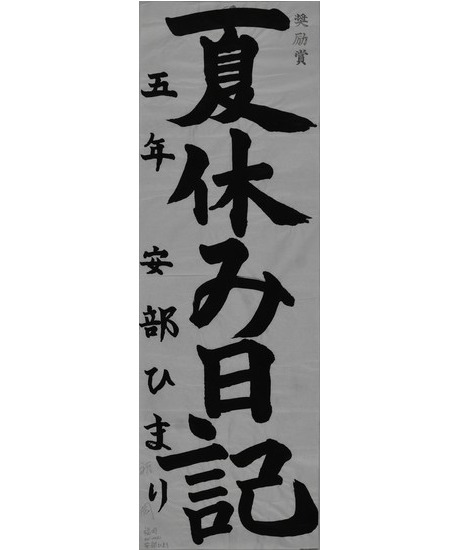 奨励賞
夏休み日記
五年 安部ひまり